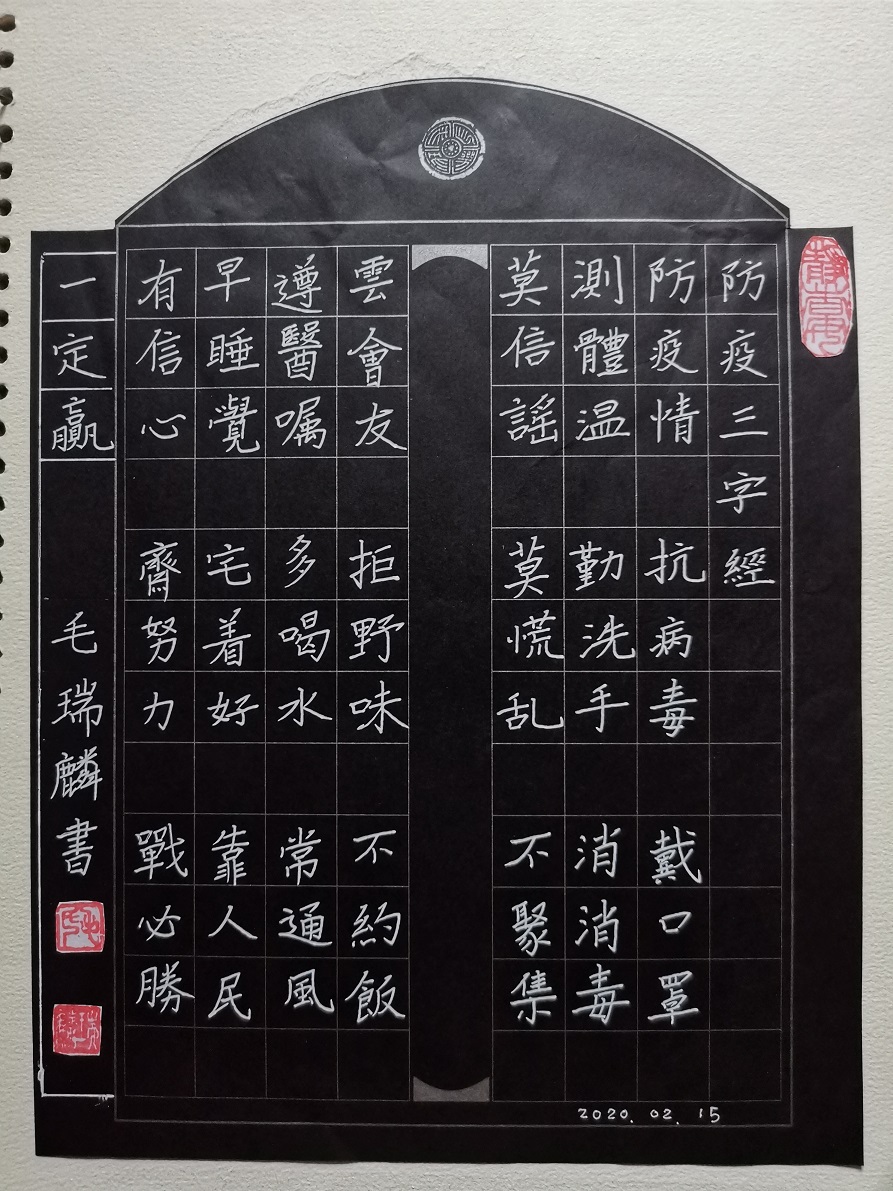 防疫三字經
防疫情 抗病毒 戴口罩
測體温 勤洗手 消消毒
莫信謡 莫慌乱 不聚集
雲會友 拒野味 不約飯
遵醫嘱 多喝水 常通風
早睡覺 宅着好 靠人民
有信心 齊努力 戰必勝
一定贏
毛瑞麟書
2020.02.15